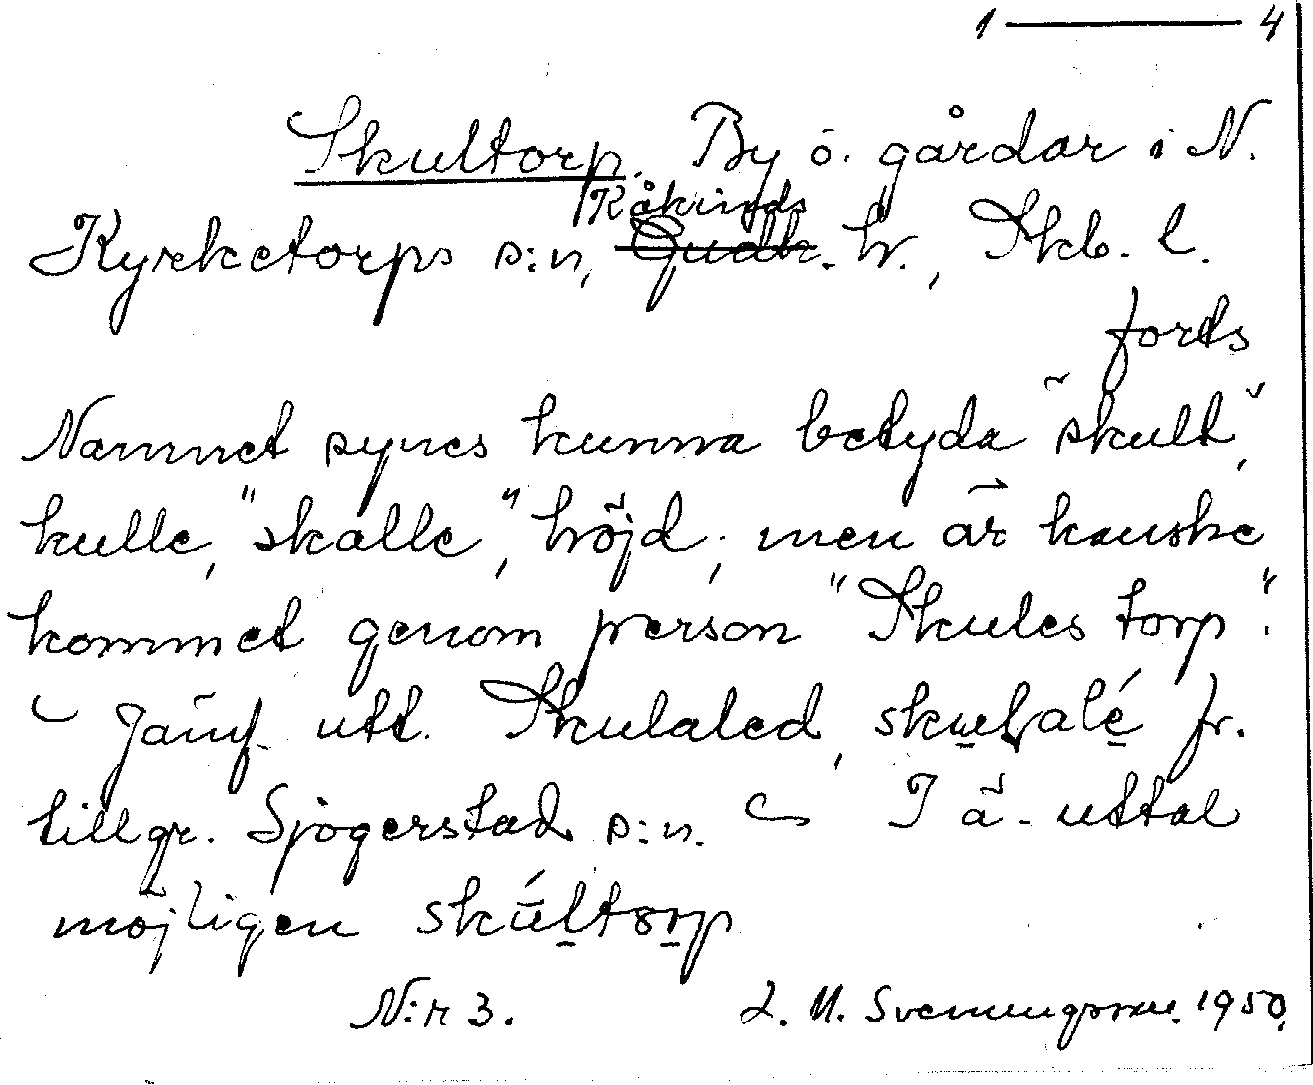 1 — 4
Skultorp. By o. gårdar i N.
Kåkinds
Kyrketorps s:n, Gudh. hr., Skb. l.
forts
Namnet synes kunna betyda "skult",
kulle, "skalle", höjd, men är kanske
kommet genom person "Skules torp".
Jämf. utt. Skulaled, skulalé fr.
tillgr. Sjogerstad s:n. I ä. uttal
möjligen skúltorp
N:r 3. L. M. Svenungsson. 1950.